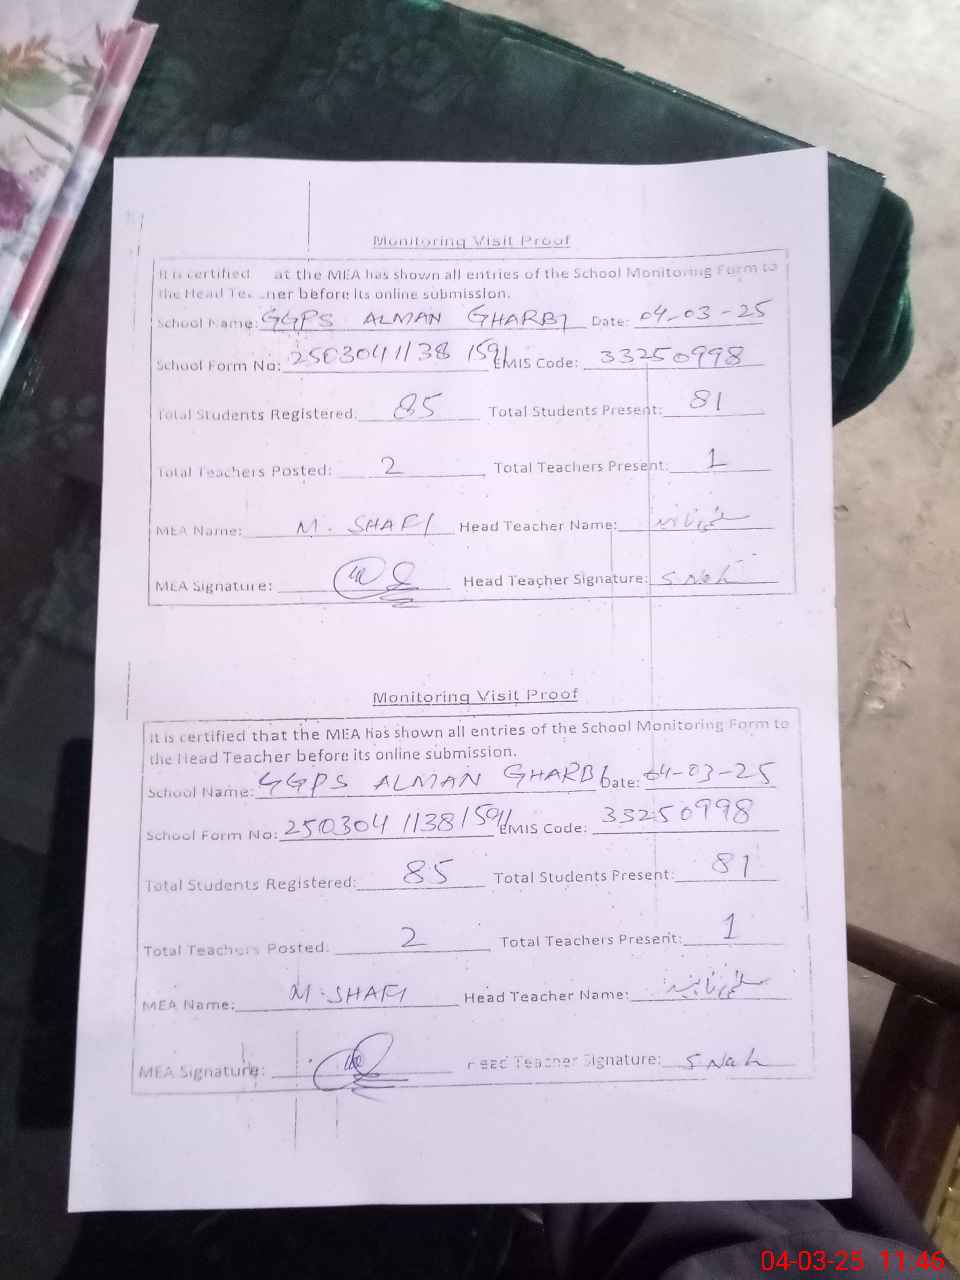 Monitoring Visit Proof
It is certified at the MEA has shown all entries of the School Monitoring Form to
the Head Teacher before its online submission.
School Name: GGPS ALMAN GHARBI Date: 04-03-25
School Form No: 2503041138 1591 EMIS Code: 33250998
Total Students Registered: 85 Total Students Present: 81
Total Teachers Posted: 2 Total Teachers Present: 1
MEA Name: M. SHAFI Head Teacher Name:
MEA Signature: Head Teacher Signature:
Monitoring Visit Proof
It is certified that the MEA has shown all entries of the School Monitoring Form to
the Head Teacher before its online submission.
School Name: GGPS ALMAN GHARBI Date: 04-03-25
School Form No: 250304 1138 1591 EMIS Code: 33250998
Total Students Registered: 85 Total Students Present: 81
Total Teachers Posted: 2 Total Teachers Present: 1
MEA Name: M. SHAFI Head Teacher Name:
MEA Signature: Head Teacher Signature:
04-03-25 11:46